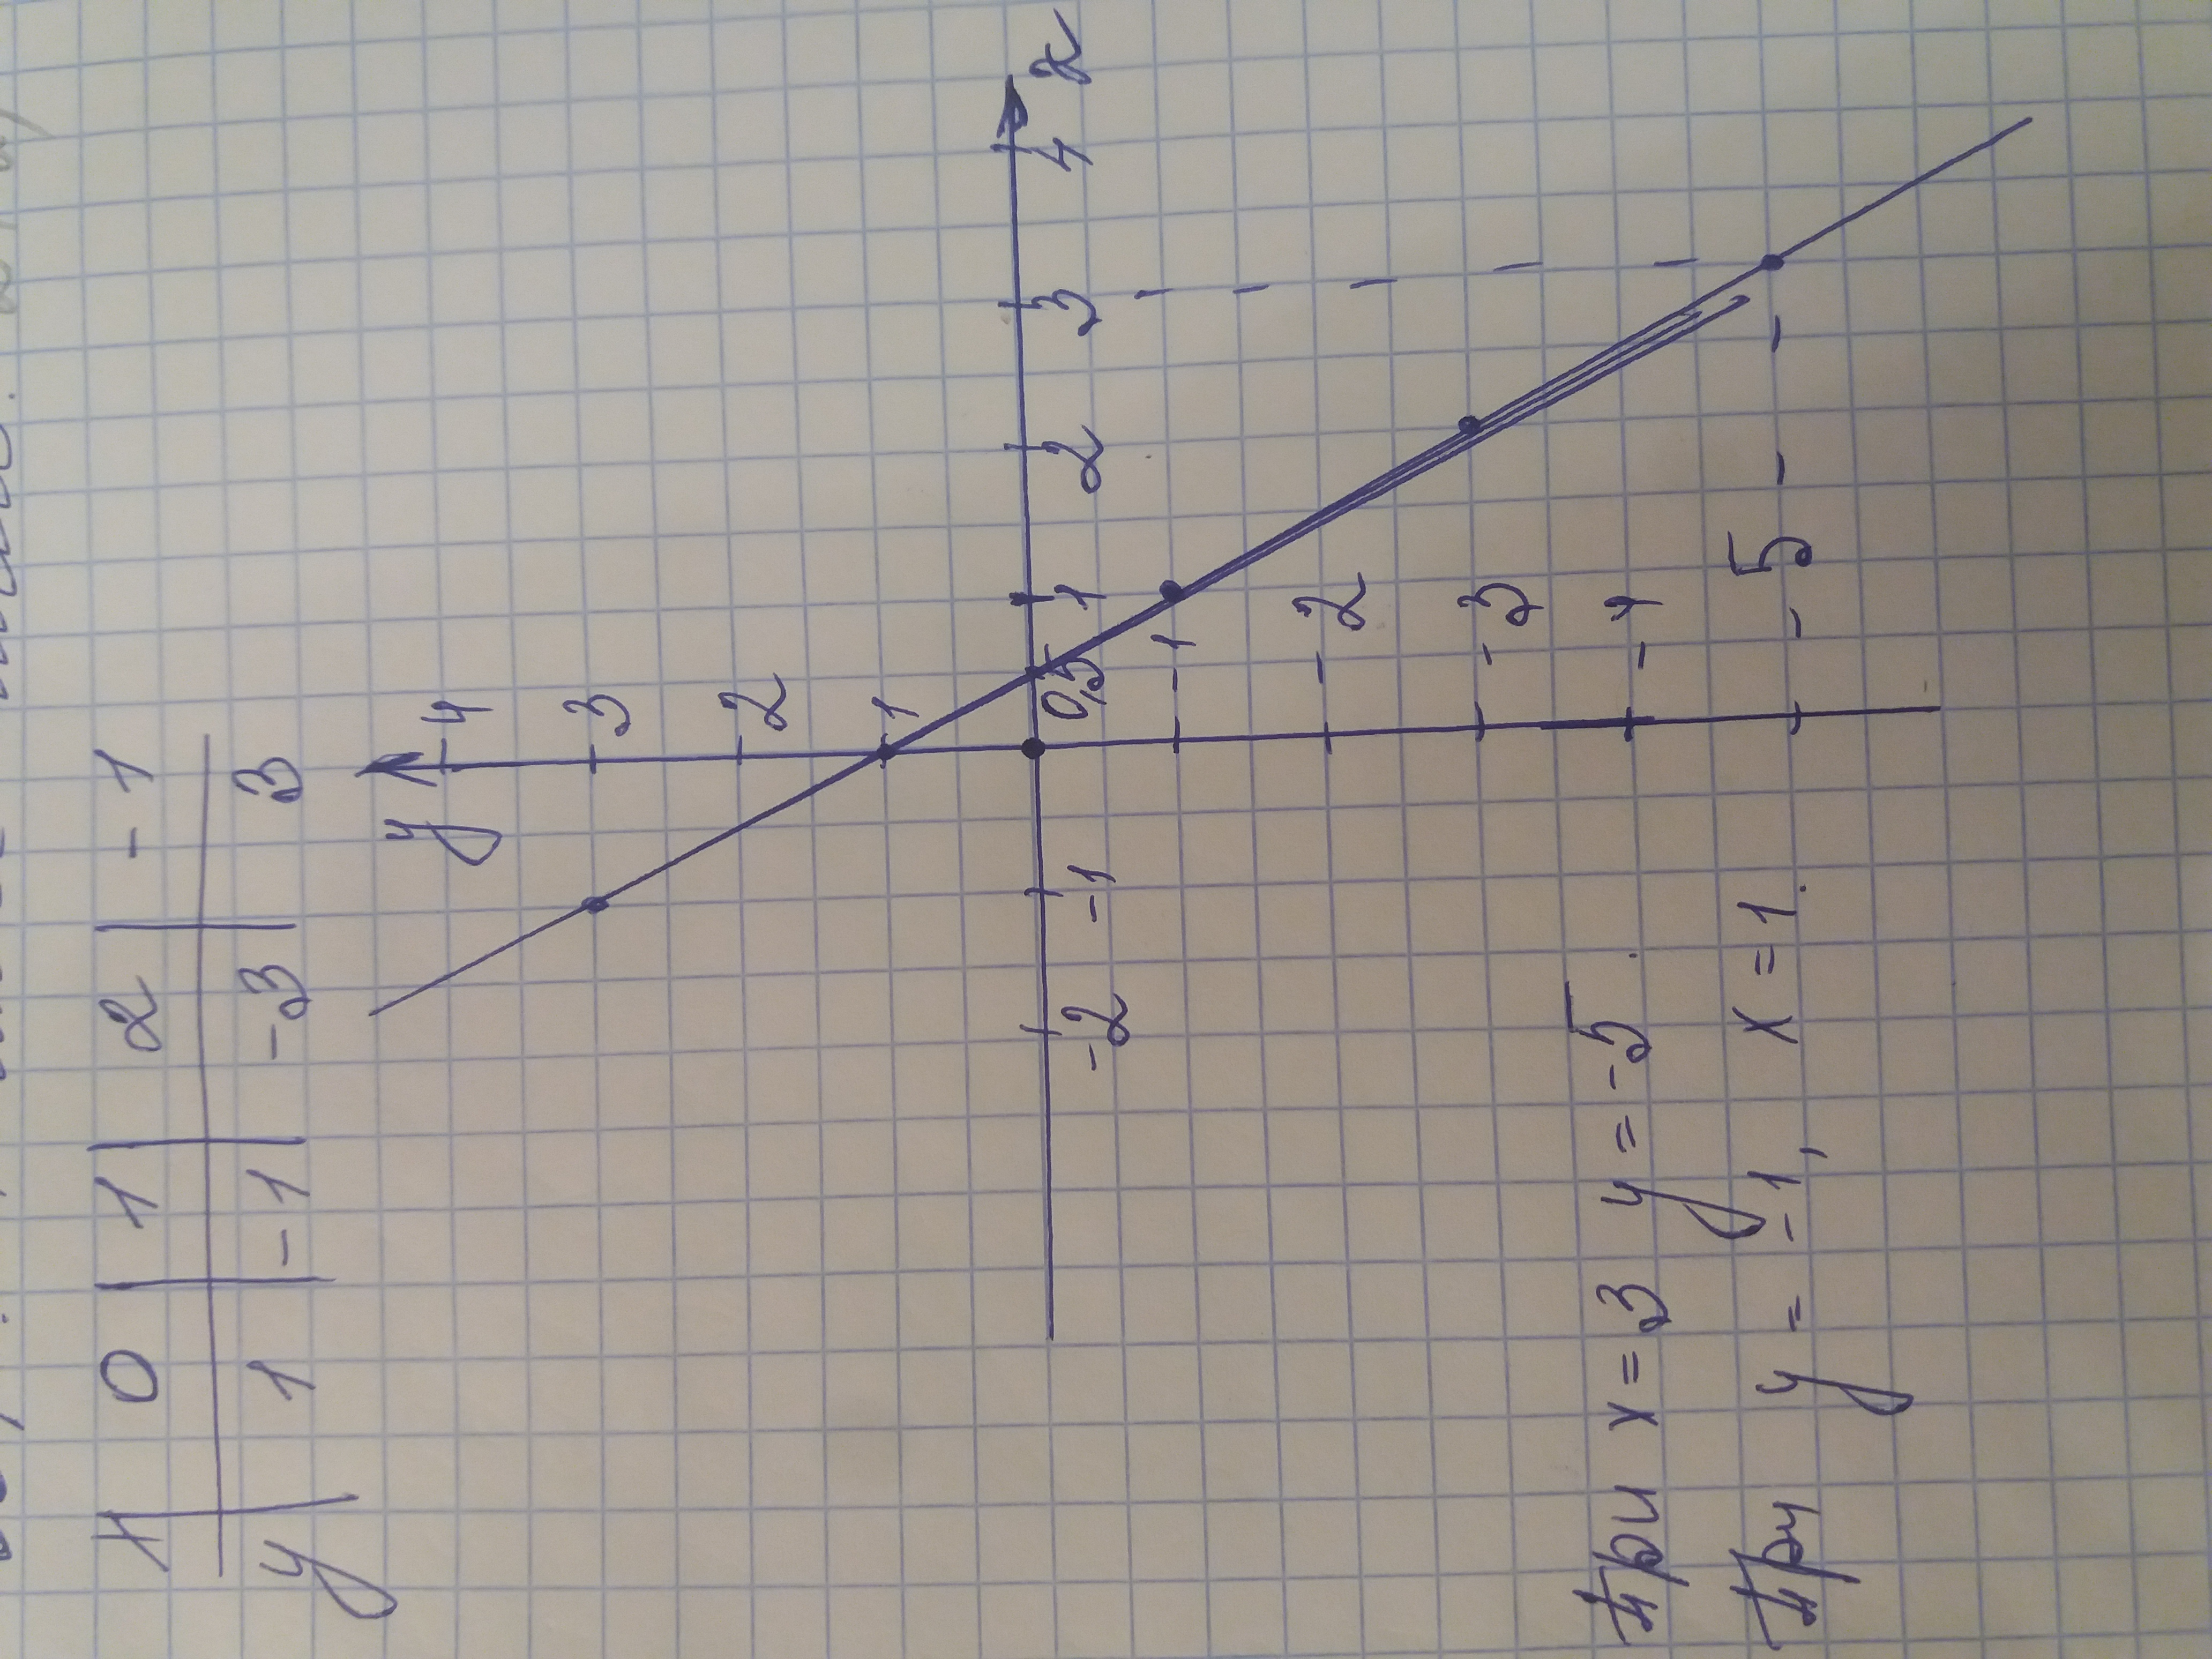 x 0 1 2 -1
y 1 -1 -3 3
y 4
3
2
1
-2 -1 0,5 1 2 3 4 x
-1
-2
-3
-4
-5
При x = 3 y = -5
При y = -1, x = 1.